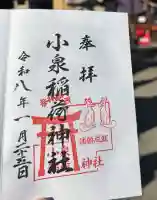 奉拝
小泉稲荷神社
令和八年一月二十五日
神社